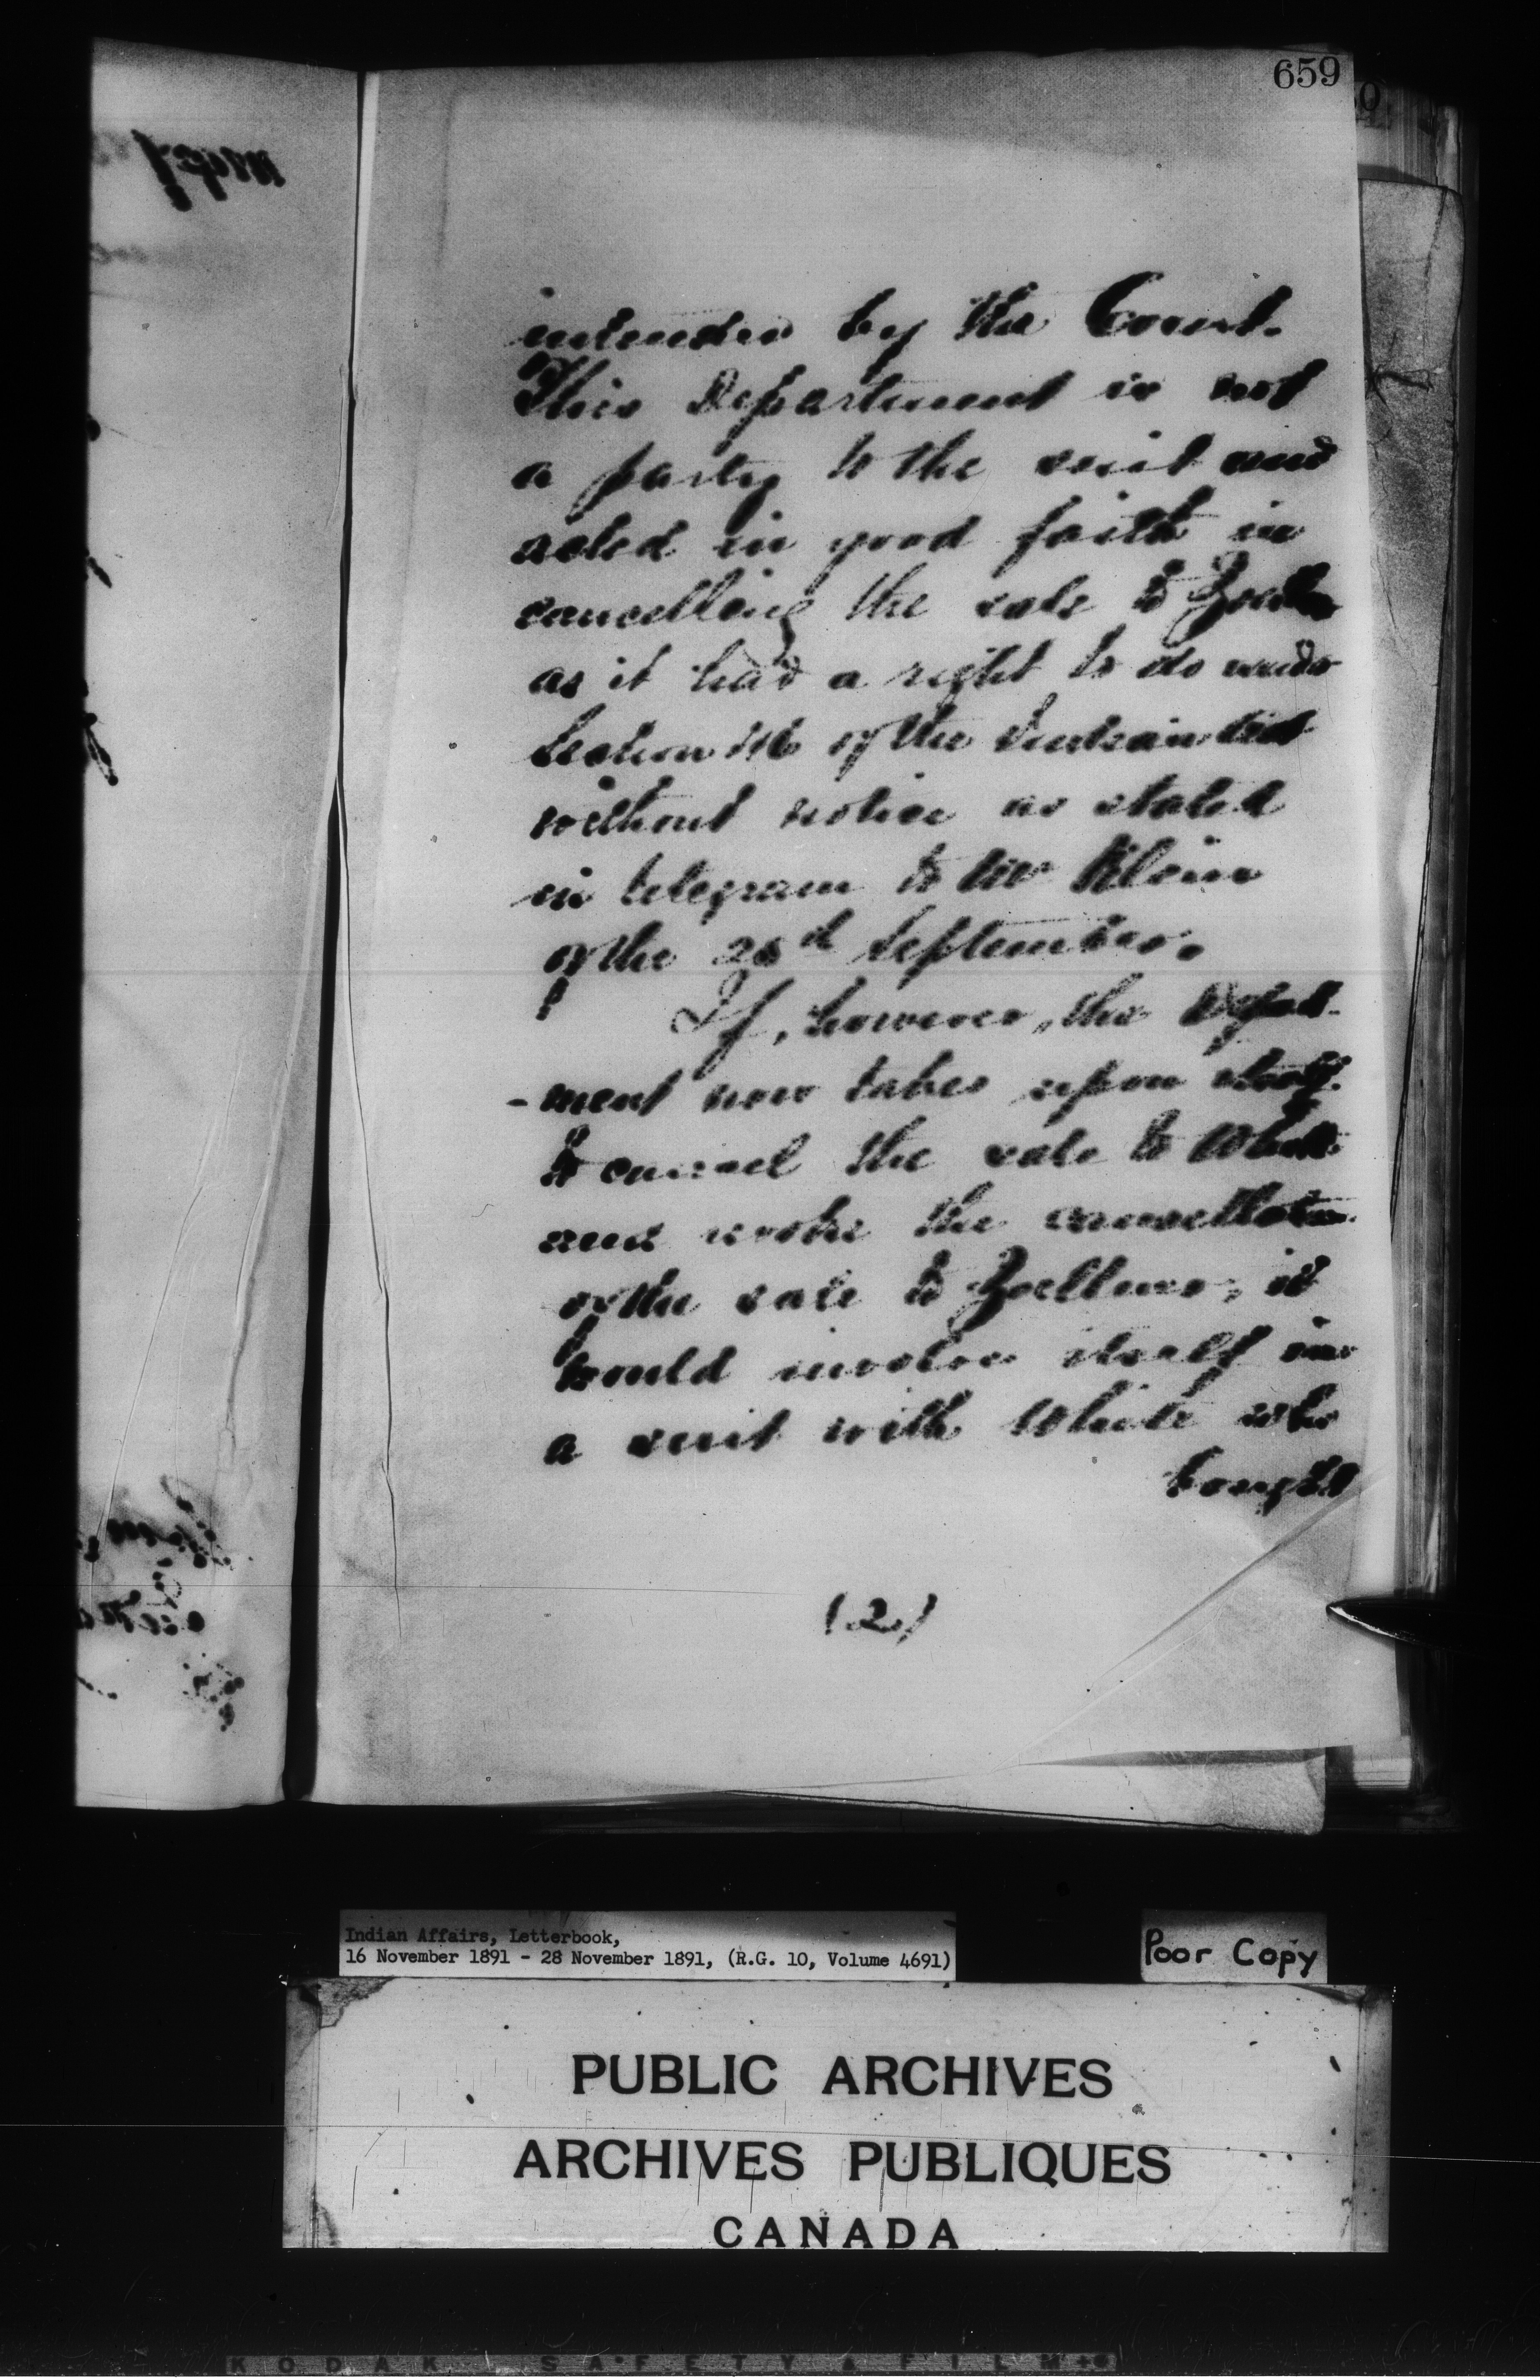 659
intended by the Court.
This Department is not
a party to the suit and
acted in good faith in
cancelling the sale to
as it had a right to do under
Section of the Indian Act
without notice as stated
in telegram to Mr Klein
of the September.
If, however, the Depart-
-ment now takes upon itself
to cancel the sale to White
and revoke the cancellation
of the sale to Zoellner, it
would involve itself in
a suit with White who
bought
(2)
Indian Affairs, Letterbook,
16 November 1891 - 28 November 1891, (R.G. 10, Volume 4691)
Poor Copy
PUBLIC ARCHIVES
ARCHIVES PUBLIQUES
CANADA
KODAK SAFETY FILM